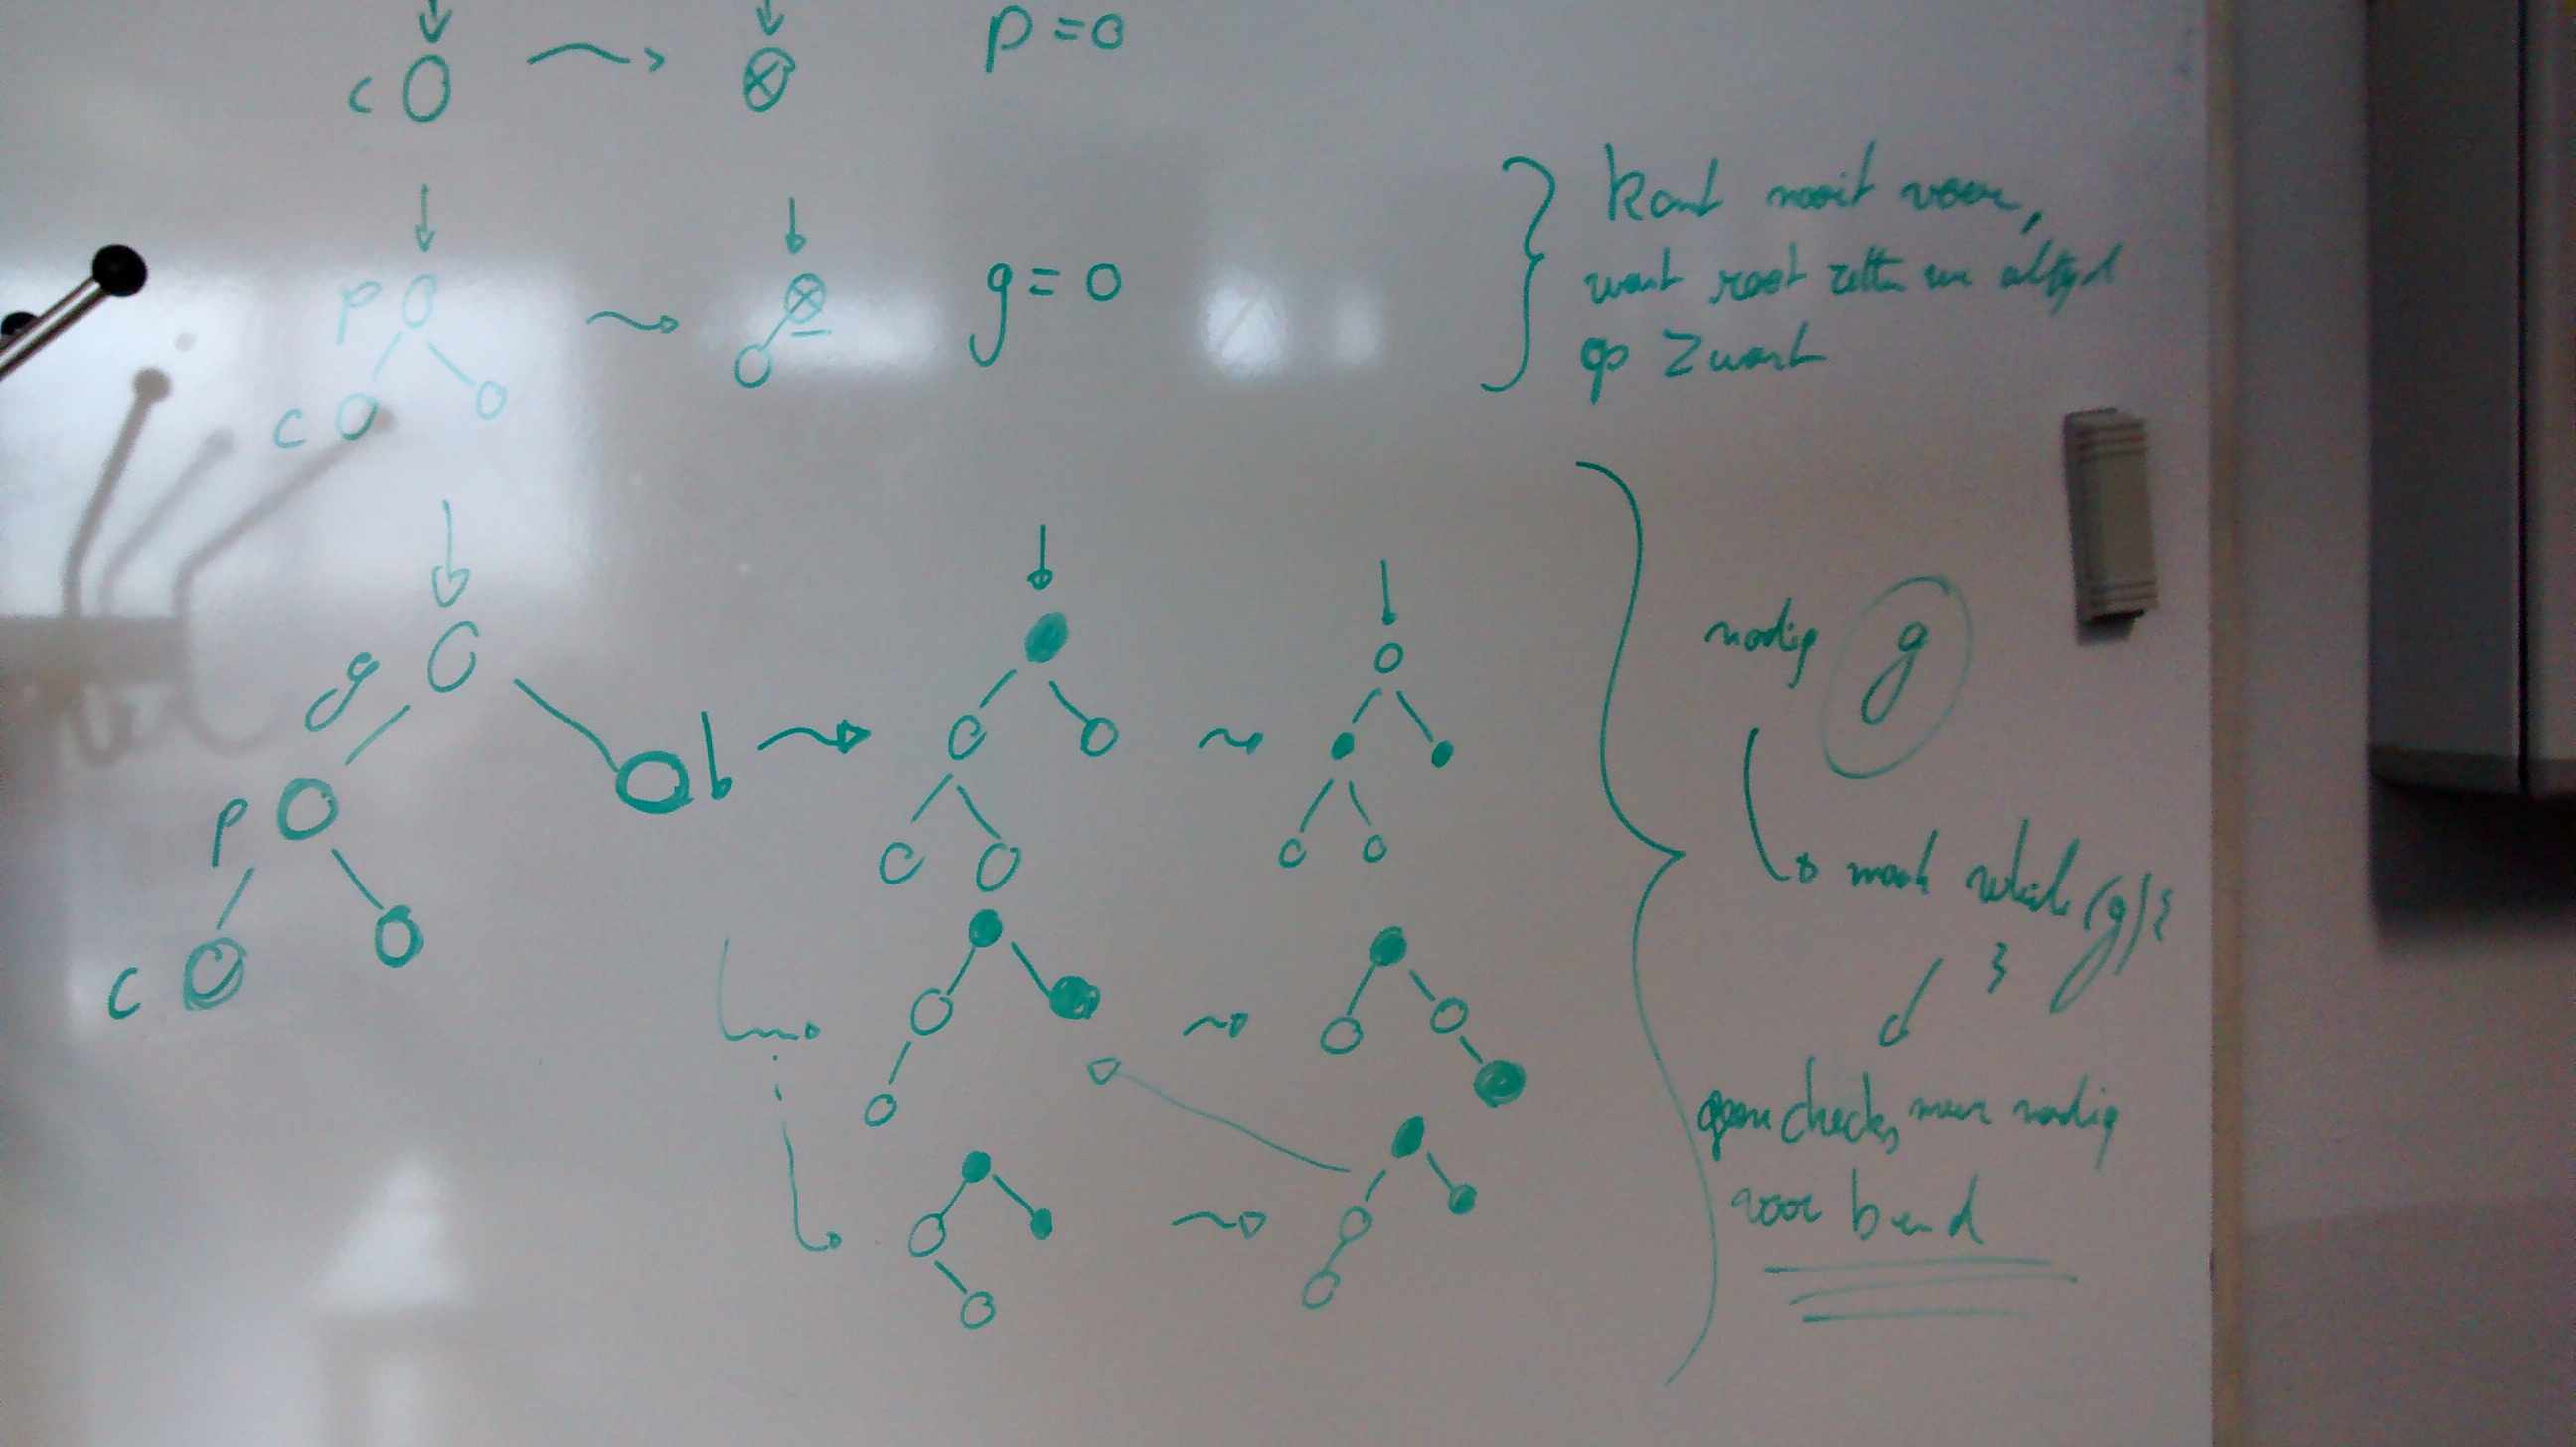 c
p = 0
p
c
g = 0
komt nooit voor,
want root zetten we altijd
op zwart
g
b
p
c
nodig g
maak while (g) {
}
geen checks meer nodig
voor b en d